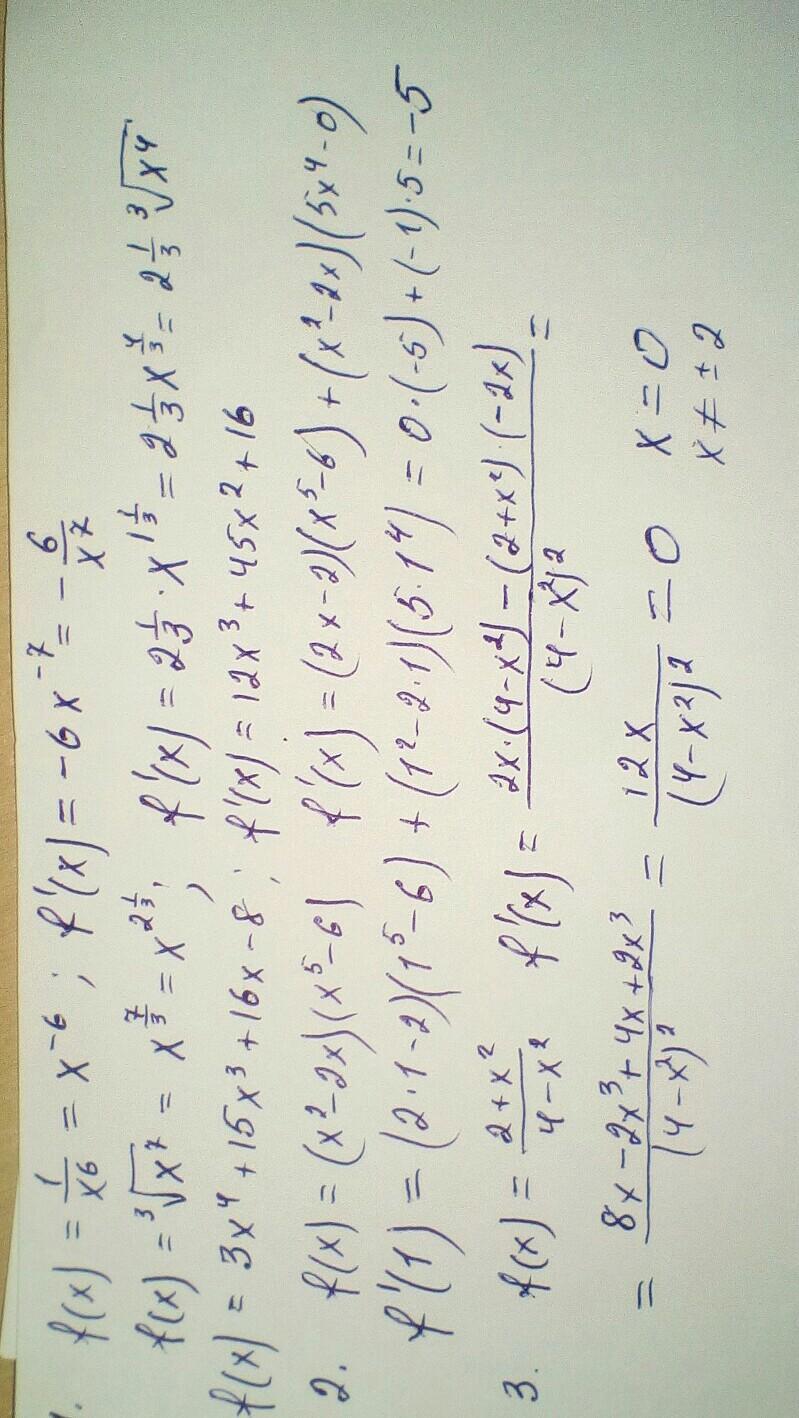 1. f(x) = 1/x⁶ = x⁻⁶ ; f'(x) = -6x⁻⁷ = -6/x⁷
f(x) = ³√x⁷ = x^(7/3) = x^(2 1/3); f'(x) = 2 1/3 · x^(1 1/3) = 2 1/3 x^(4/3) = 2 1/3 ³√x⁴
f(x) = 3x⁴ + 15x³ + 16x - 8 ; f'(x) = 12x³ + 45x² + 16
2. f(x) = (x² - 2x)(x⁵ - 6) f'(x) = (2x - 2)(x⁵ - 6) + (x² - 2x)(5x⁴ - 0)
f'(1) = (2·1 - 2)(1⁵ - 6) + (1² - 2·1)(5·1⁴) = 0·(-5) + (-1)·5 = -5
3. f(x) = (2 + x²)/(4 - x²) f'(x) = (2x·(4 - x²) - (2 + x²)·(-2x))/(4 - x²)² =
= (8x - 2x³ + 4x + 2x³)/(4 - x²)² = 12x/(4 - x²)² = 0 x = 0
x ≠ ±2